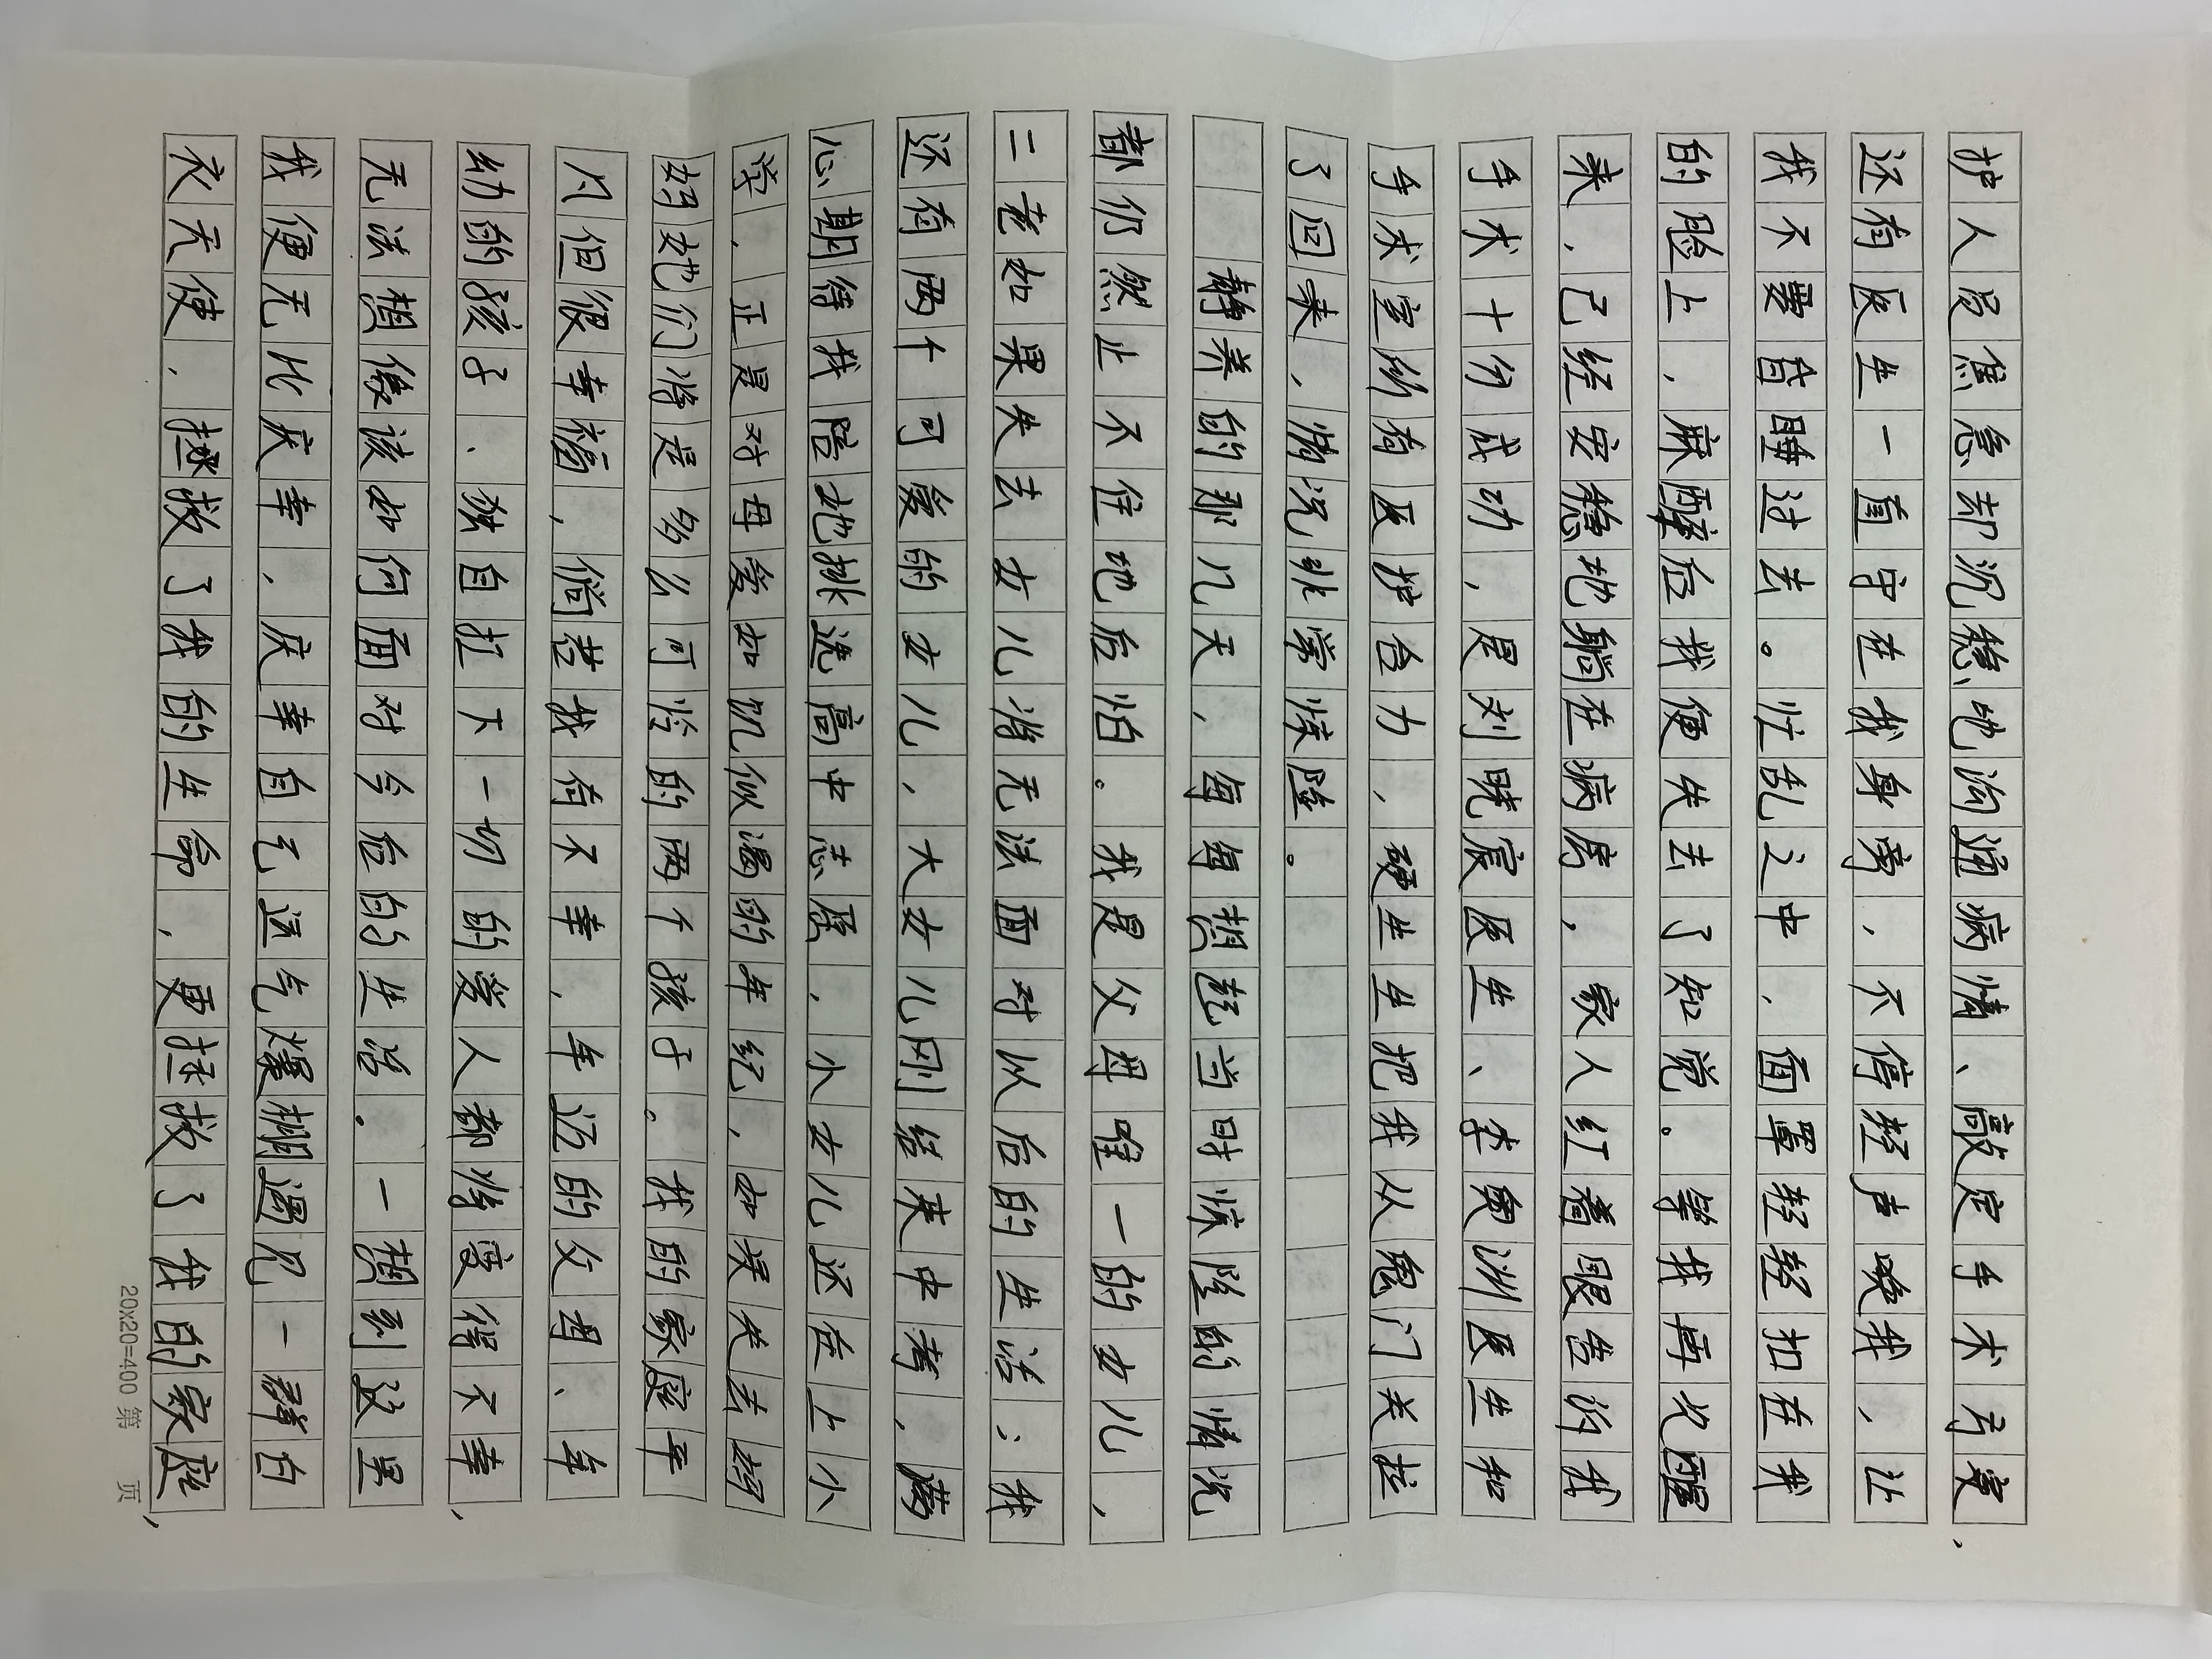 护人员焦急却沉稳地沟通病情、敲定手术方案,
还有医生一直守在我身旁,不停轻声唤我,让
我不要昏睡过去。忙乱之中,面罩轻轻扣在我
的脸上,麻醉后我便失去了知觉。等我再次醒
来,已经安稳地躺在病房,家人红着眼告诉我
手术十分成功,是刘晓宸医生、李奥渊医生和
手术室所有医护合力,硬生生把我从鬼门关拉
了回来,情况非常惊险。
静养的那几天,每每想起当时惊险的情况
都仍然止不住地后怕。我是父母唯一的女儿,
二老如果失去女儿将无法面对以后的生活;我
还有两个可爱的女儿,大女儿刚结束中考,满
心期待我陪她挑选高中志愿,小女儿还在上小
学,正是对母爱如饥似渴的年纪,如果失去妈
妈她们将是多么可怜的两个孩子。我的家庭平
凡但很幸福,倘若我有不幸,年迈的父母、年
幼的孩子、独自扛下一切的爱人都将变得不幸,
无法想像该如何面对今后的生活。一想到这里
我便无比庆幸,庆幸自己运气爆棚遇见一群白
衣天使,拯救了我的生命,更拯救了我的家庭,
20x20=400 第 页